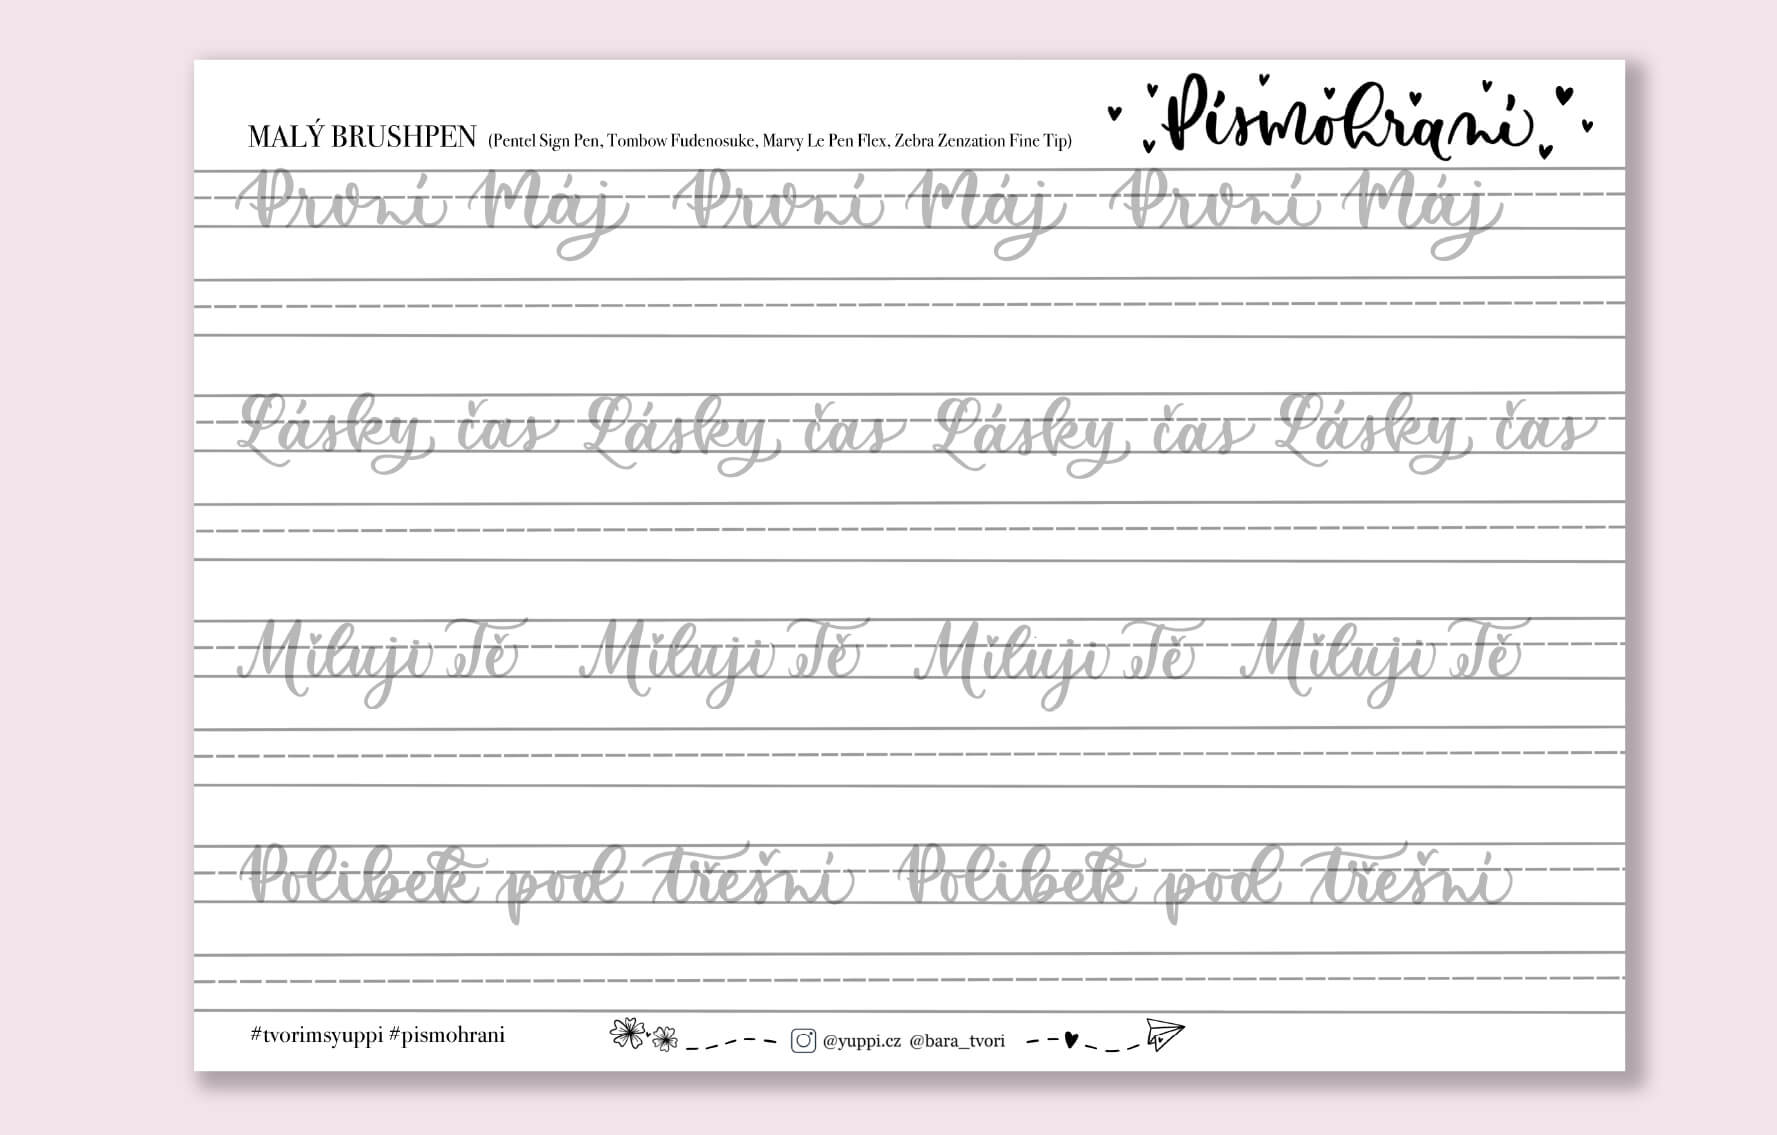 MALÝ BRUSHPEN (Pentel Sign Pen, Tombow Fudenosuke, Marvy Le Pen Flex, Zebra Zenzation Fine Tip)
Písmohraní
První Máj První Máj První Máj
Lásky čas Lásky čas Lásky čas Lásky čas
Miluji Tě Miluji Tě Miluji Tě Miluji Tě
Polibek pod třešní Polibek pod třešní
#tvorimsyuppi #pismohrani
@yuppi.cz @bara_tvori